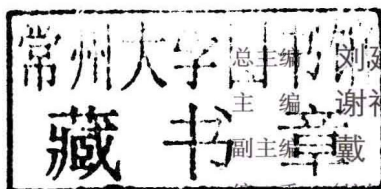 常州大学图书馆
藏书章
总主编 刘
主编 谢
副主编 戴